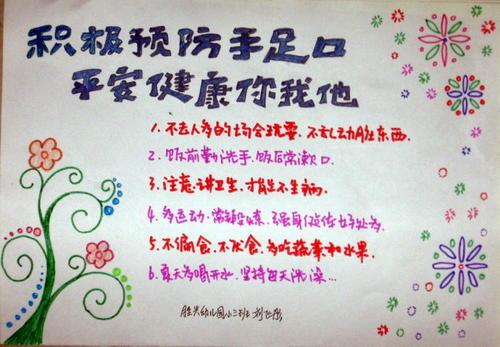 积极预防手足口
平安健康你我他
1. 不去人多的场合玩耍. 不乱动脏东西.
2. 饭前勤洗手, 饭后常漱口.
3. 注意讲卫生. 才能不生病.
4. 多运动. 常锻炼. 强身健体
5. 不偏食. 不厌食. 多吃蔬菜和水果.
6. 夏天多喝开水. 坚持每天洗澡...
幼儿园小三班 刘